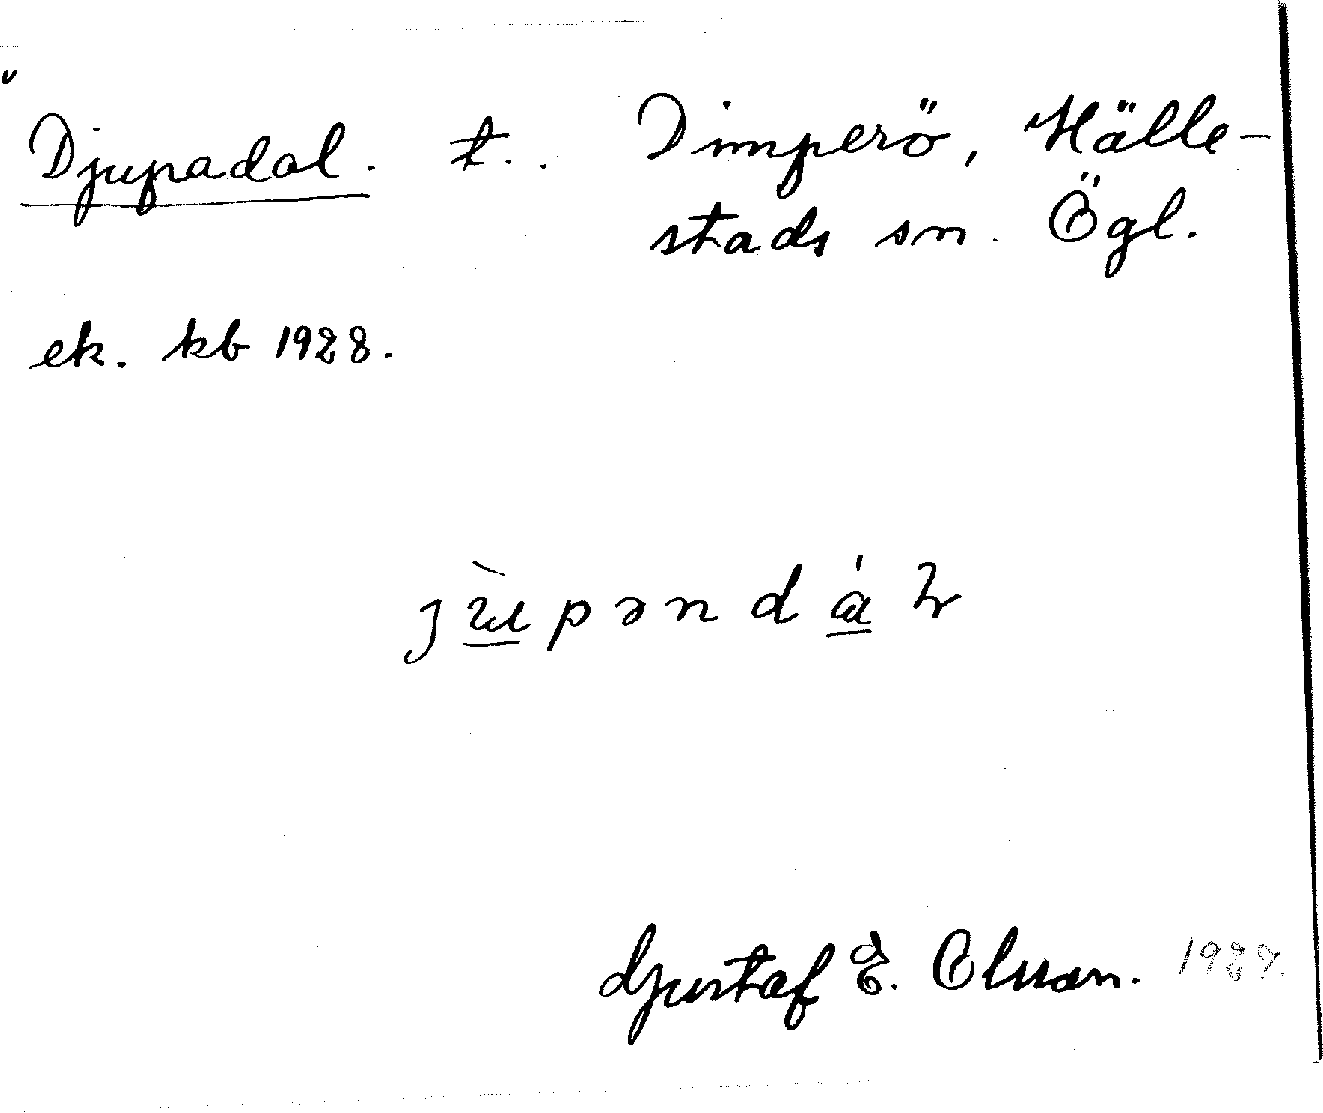 Djupadal. t.. Dimperö, Hälle-
stads sn. Ögl.
ek. kb 1928.
Gustaf E. Olsson. 1928.